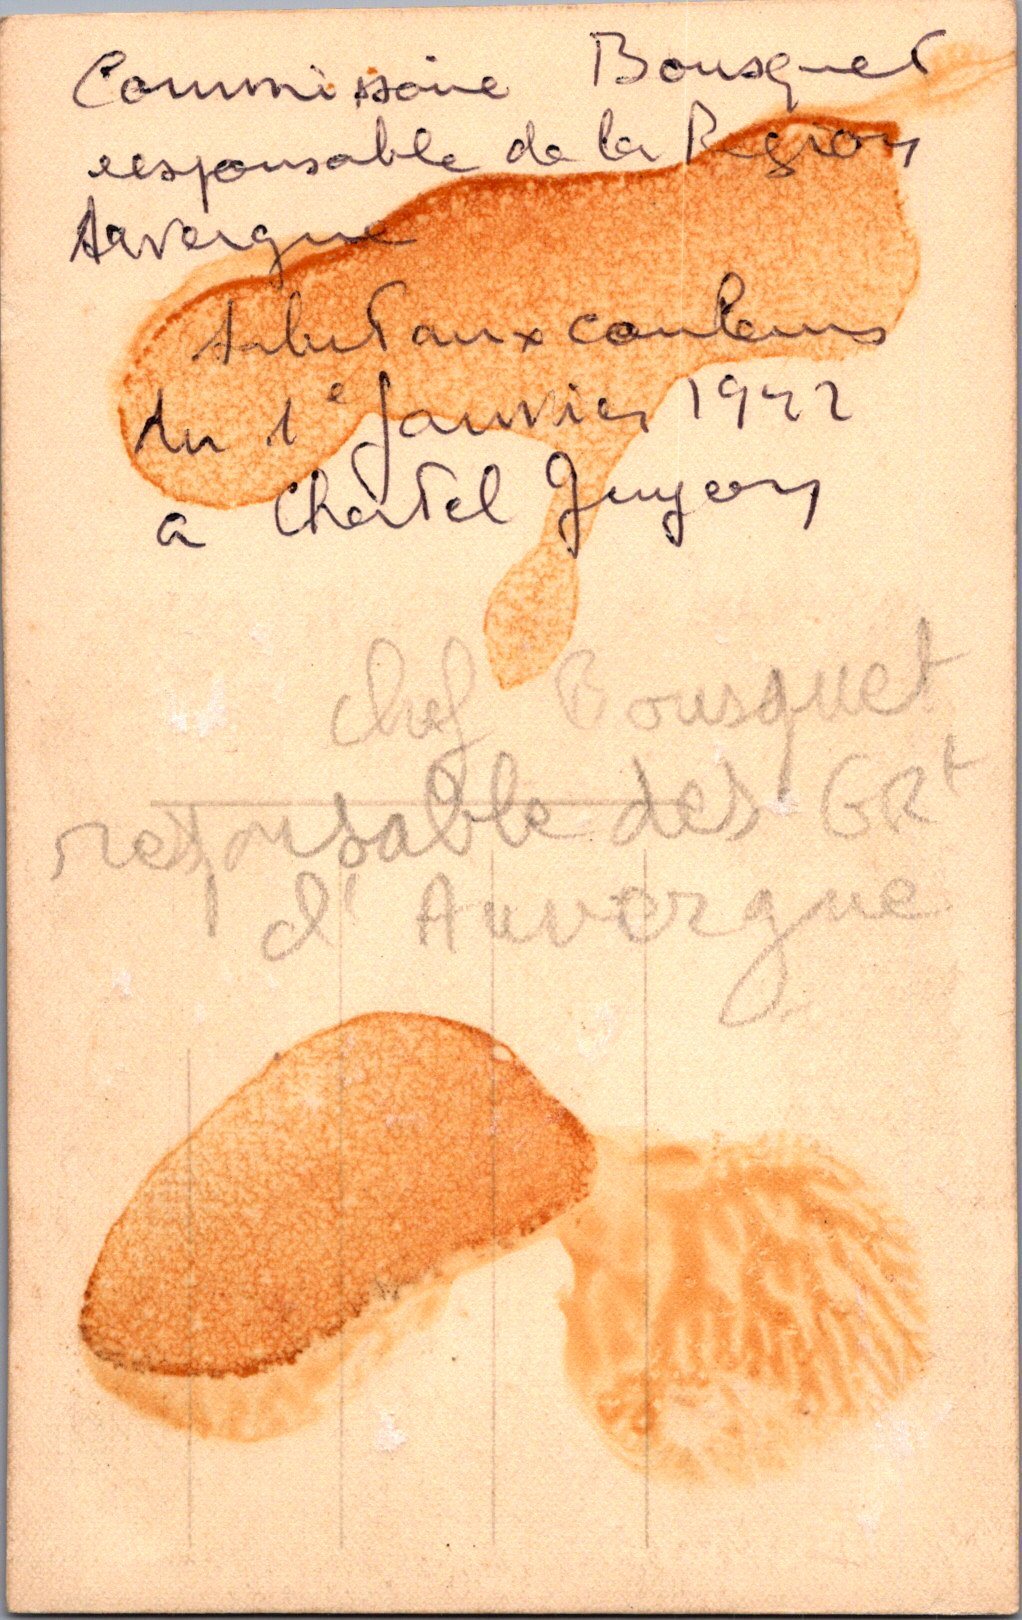 Commissaire Bousquet
responsable de la Région
Auvergne
Salut aux couleurs
du 1e Janvier 1942
a Chatel Guyon
Chef Bousquet
responsable des GRt
d'Auvergne